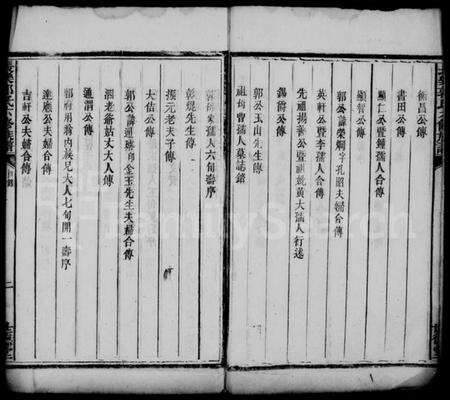 衡昌公傳
書田公傳
顯仁公暨鍾孺人合傳
顯智公傳
郭公諱榮炯字孔昭夫婦合傳
英軒公暨李孺人合傳
先祖揚善公暨祖妣黃大孺人行述
錫疇公傳
郭公玉山先生傳
祖母曾孺人墓誌銘
孺人六旬壽序
彰焜先生傳
漢元老夫子傳
大佶公傳
郭公諱運隆字金玉先生夫婦合傳
泗老爺姑丈大人傳
通渭公傳
郭府翰內族兄大人七旬開一壽序
達應公夫婦合傳
吉軒公夫婦合傳